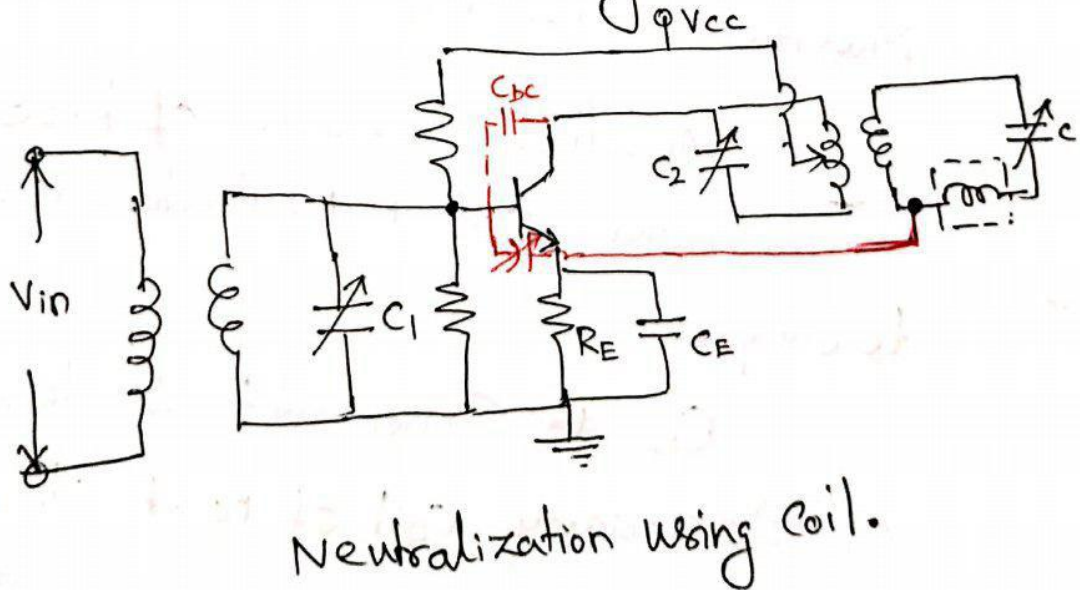 Vcc
Cbc
C2
C
Vin
C1
RE
CE
Neutralization using coil.